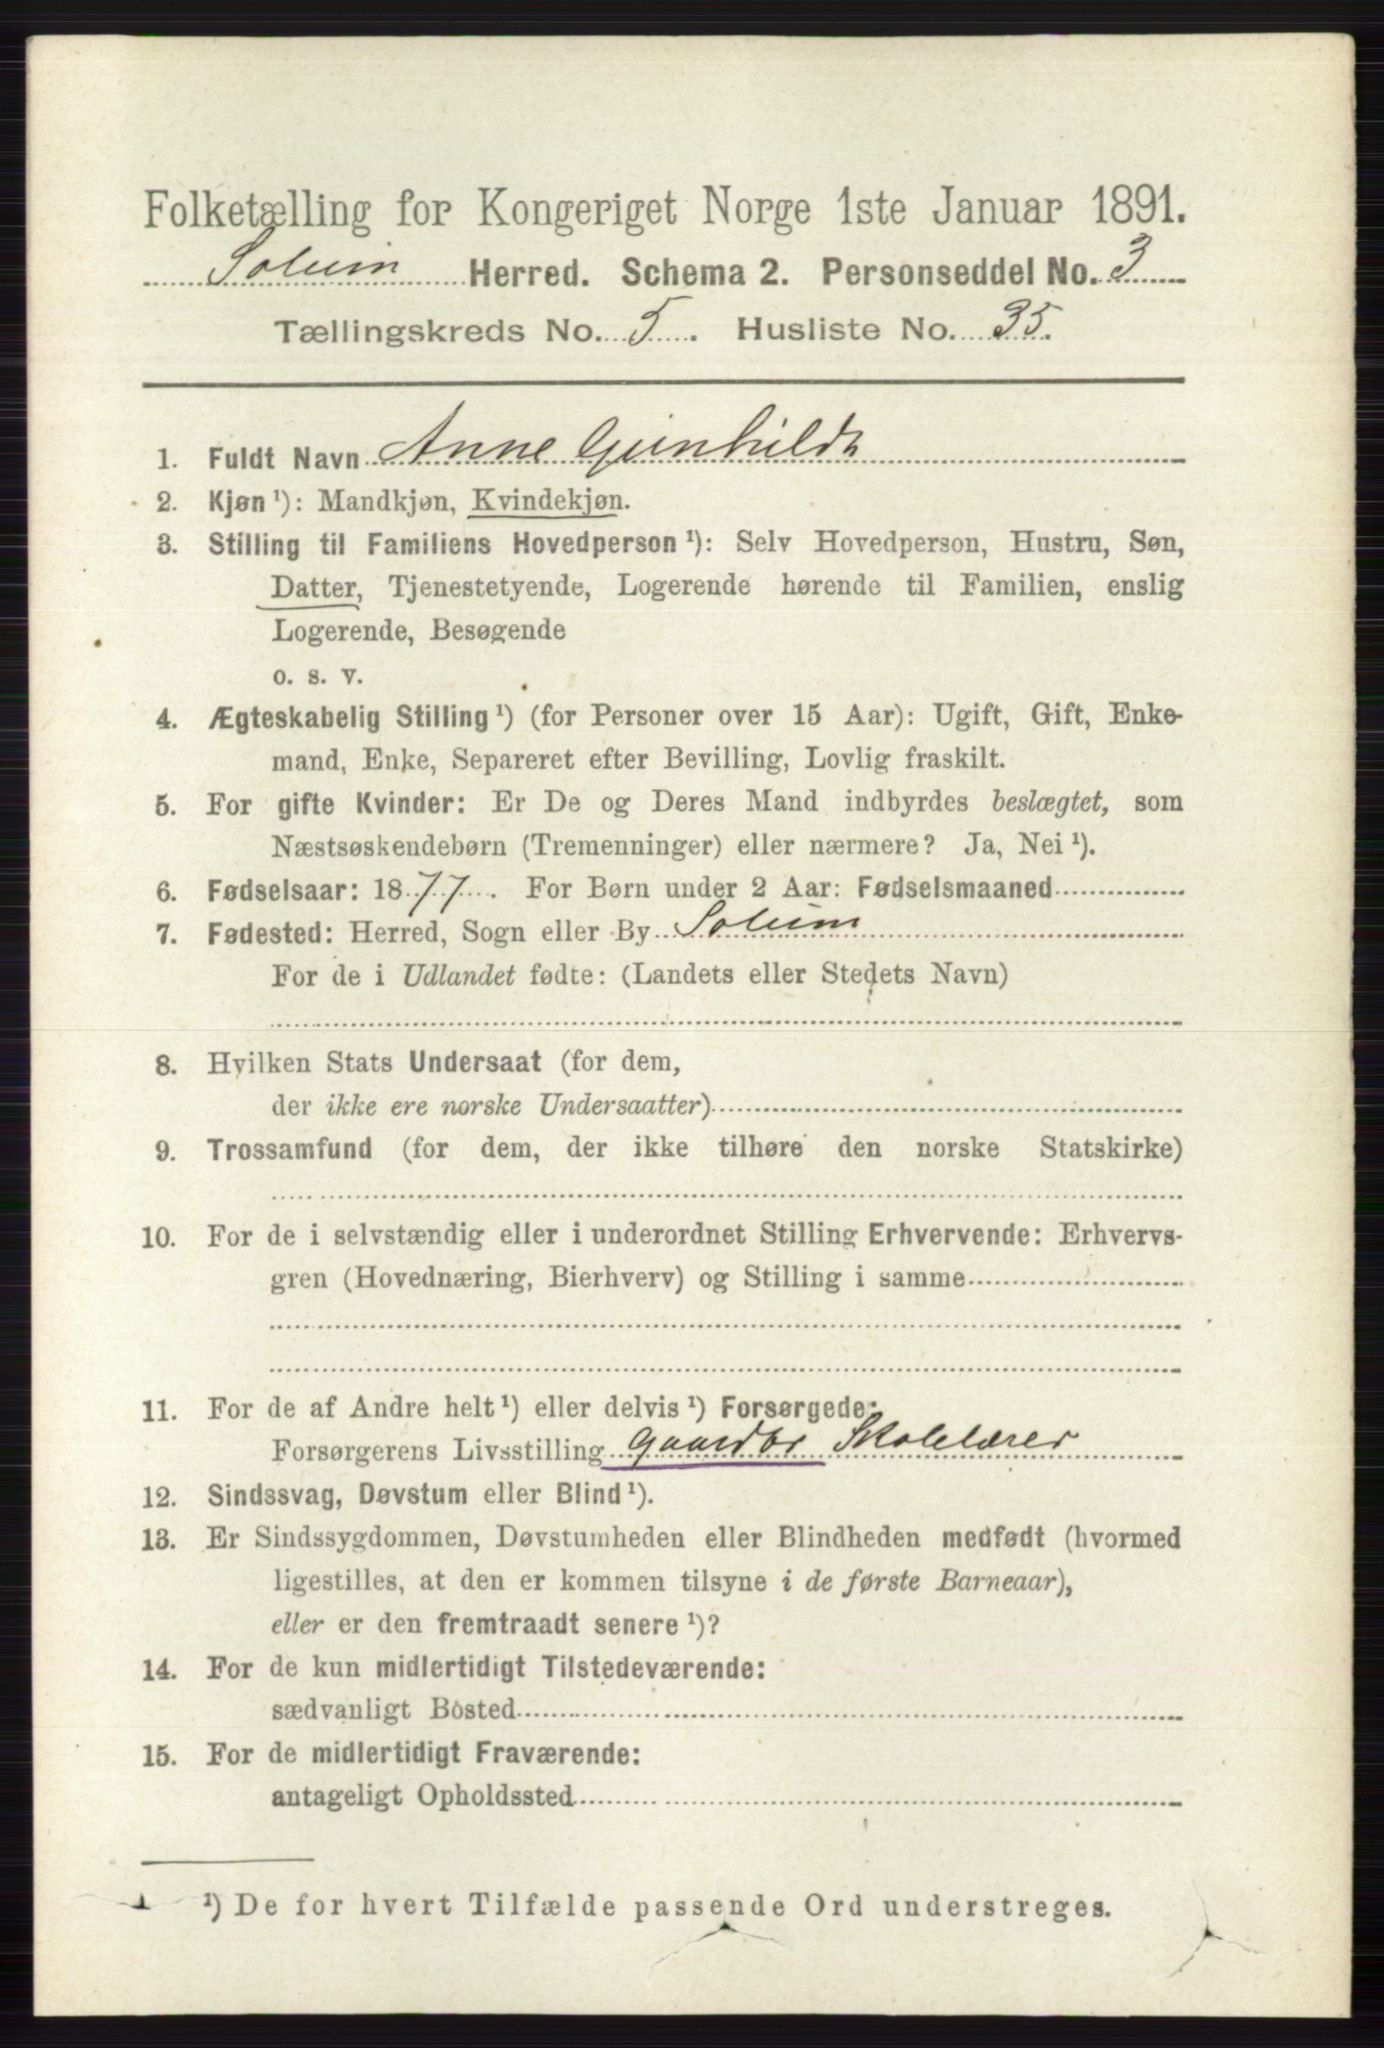 Folketælling for Kongeriget Norge 1ste Januar 1891.
Solum Herred. Schema 2. Personseddel No. 3
Tællingskreds No. 5. Husliste No. 35.
1. Fuldt Navn Anne Gunhilda
2. Kjøn ¹): Mandkjøn, Kvindekjøn.
3. Stilling til Familiens Hovedperson ¹): Selv Hovedperson, Hustru, Søn,
Datter, Tjenestetyende, Logerende hørende til Familien, enslig
Logerende, Besøgende
o. s. v.
4. Ægteskabelig Stilling ¹) (for Personer over 15 Aar): Ugift, Gift, Enke-
mand, Enke, Separeret efter Bevilling, Lovlig fraskilt.
5. For gifte Kvinder: Er De og Deres Mand indbyrdes beslægtet, som
Næstsøskendebørn (Tremenninger) eller nærmere? Ja, Nei ¹).
6. Fødselsaar: 1877. For Børn under 2 Aar: Fødselsmaaned
7. Fødested: Herred, Sogn eller By Solum
For de i Udlandet fødte: (Landets eller Stedets Navn)
8. Hvilken Stats Undersaat (for dem,
der ikke ere norske Undersaatter)
9. Trossamfund (for dem, der ikke tilhøre den norske Statskirke)
10. For de i selvstændig eller i underordnet Stilling Erhvervende: Erhvervs-
gren (Hovednæring, Bierhverv) og Stilling i samme
11. For de af Andre helt ¹) eller delvis ¹) Forsørgede:
Forsørgerens Livsstilling Gaardbr Skolelærer
12. Sindssvag, Døvstum eller Blind ¹).
13. Er Sindssygdommen, Døvstumheden eller Blindheden medfødt (hvormed
ligestilles, at den er kommen tilsyne i de første Barneaar),
eller er den fremtraadt senere ¹)?
14. For de kun midlertidigt Tilstedeværende:
sædvanligt Bosted
15. For de midlertidigt Fraværende:
antageligt Opholdssted
¹) De for hvert Tilfælde passende Ord understreges.